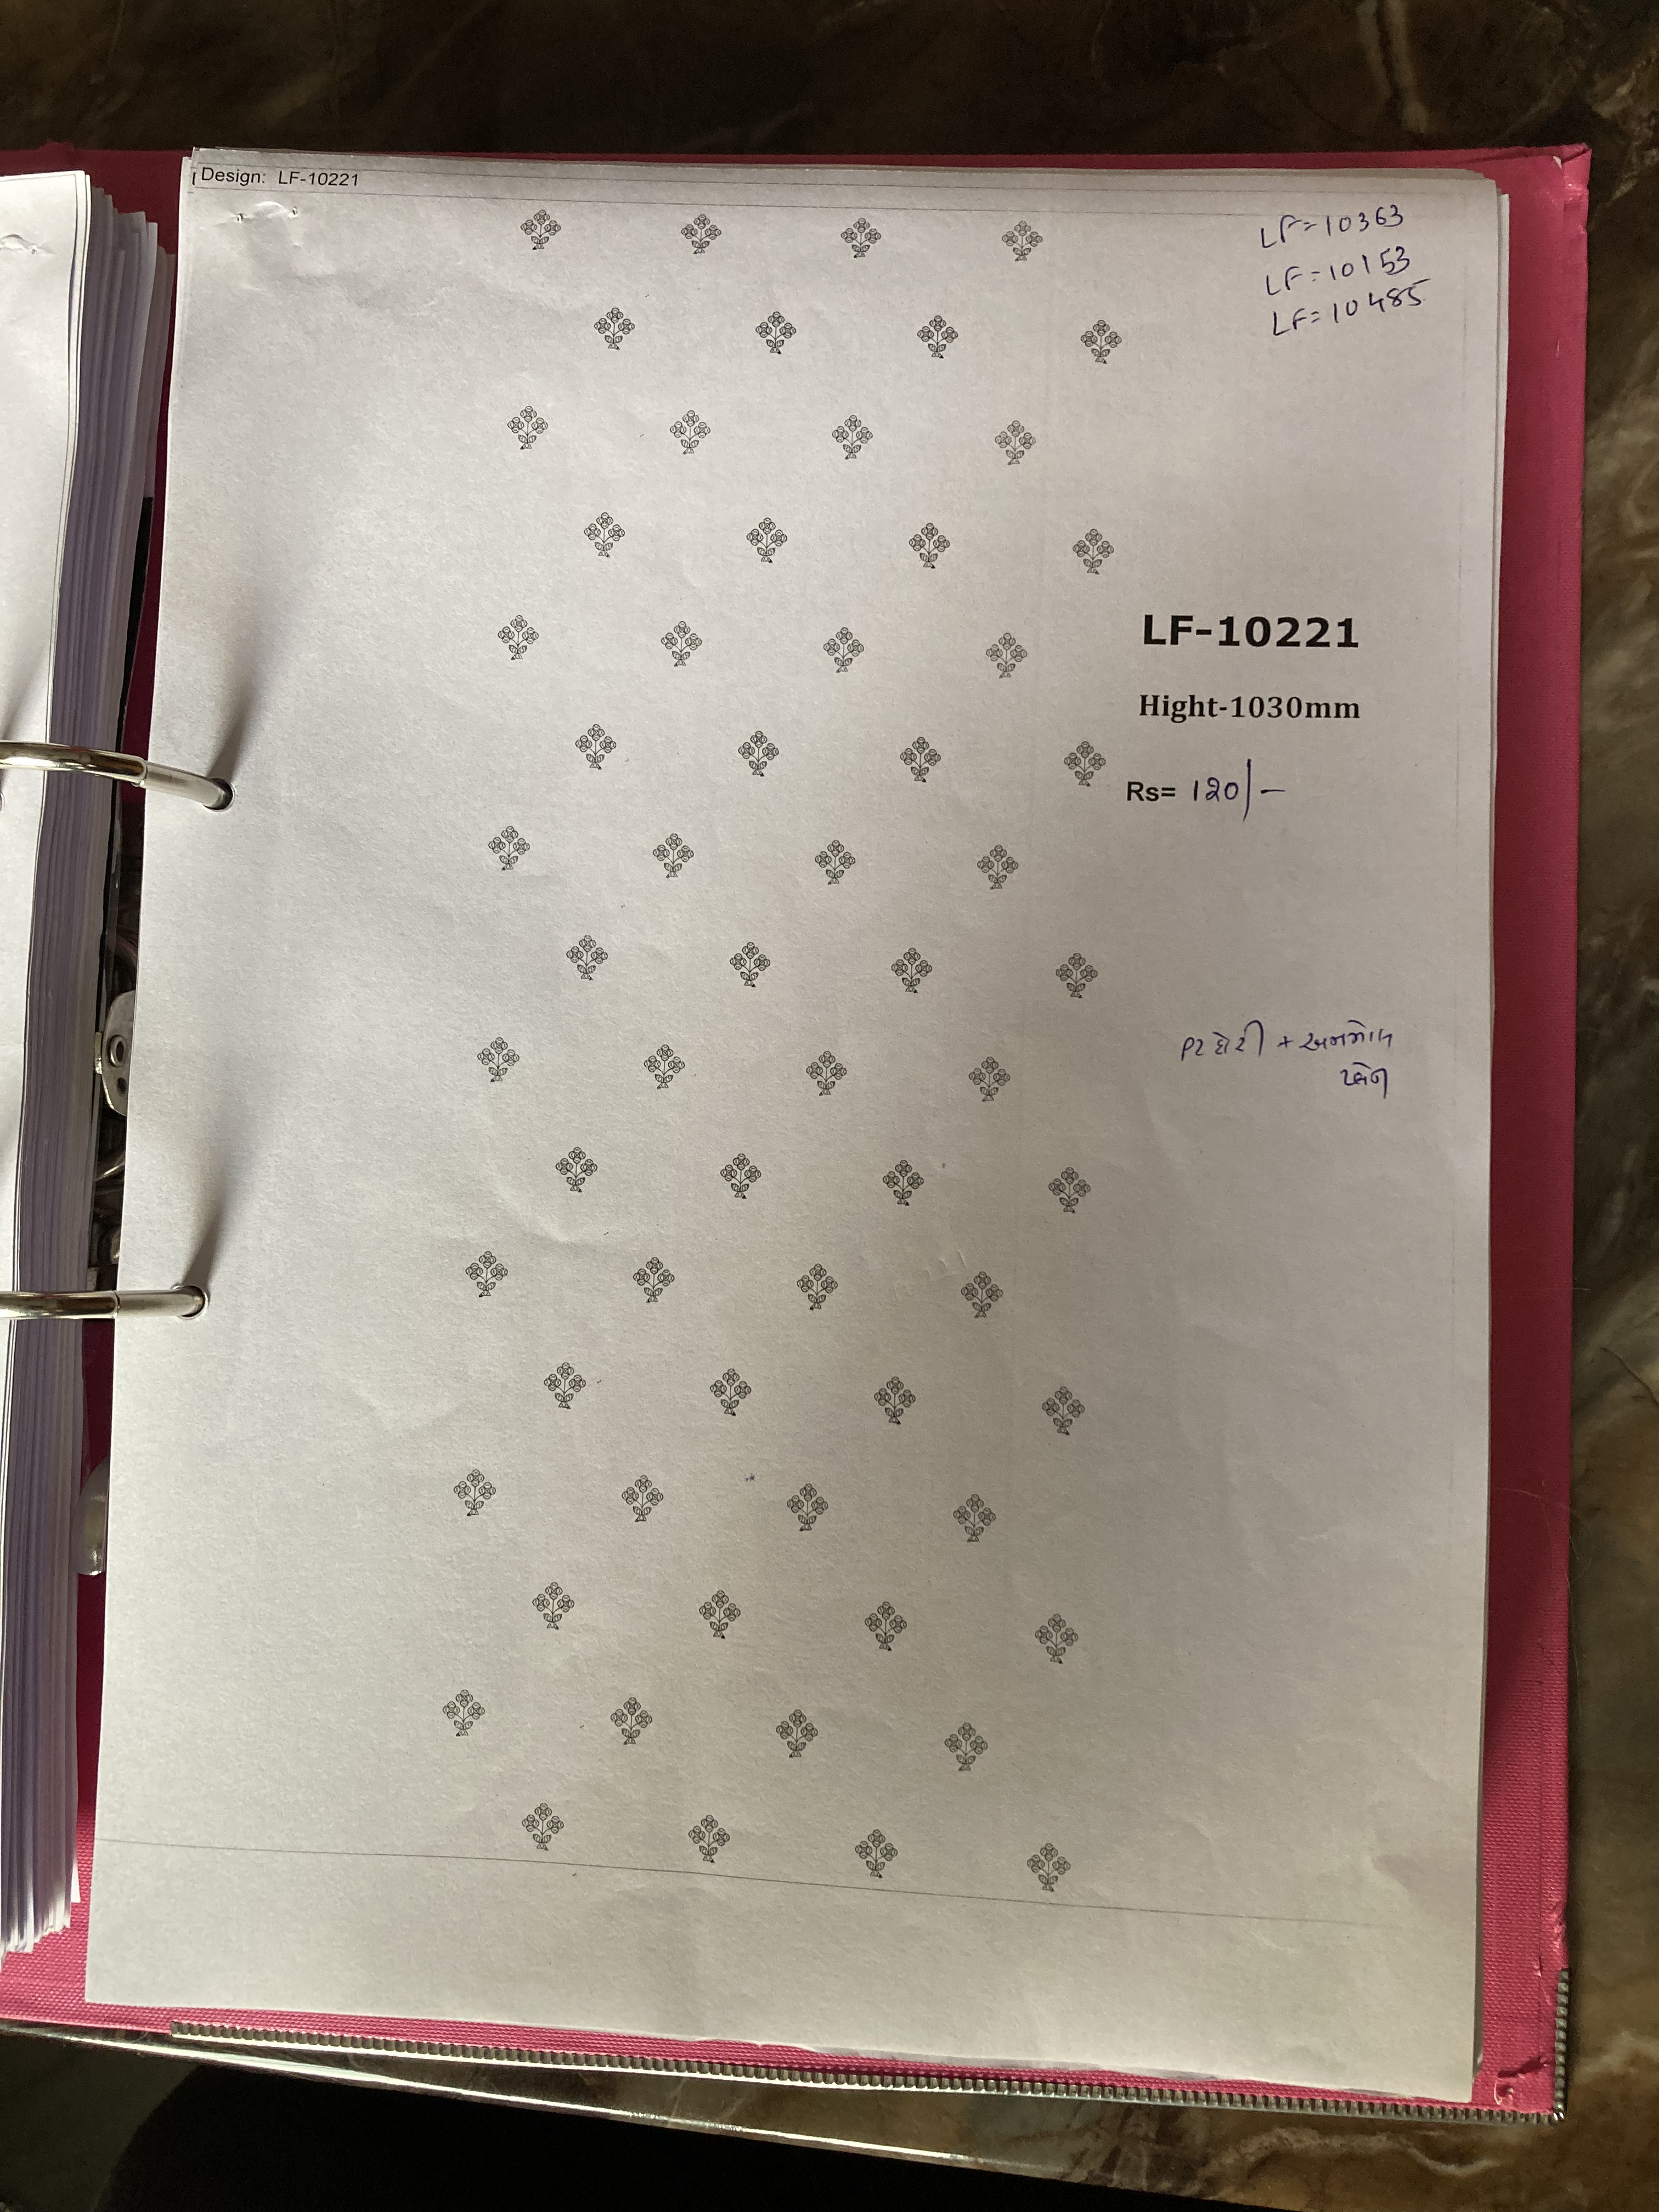 Design: LF-10221
LF=10363
LF=10153
LF=10485
LF-10221
Hight-1030mm
Rs= 120/-
દોરી +